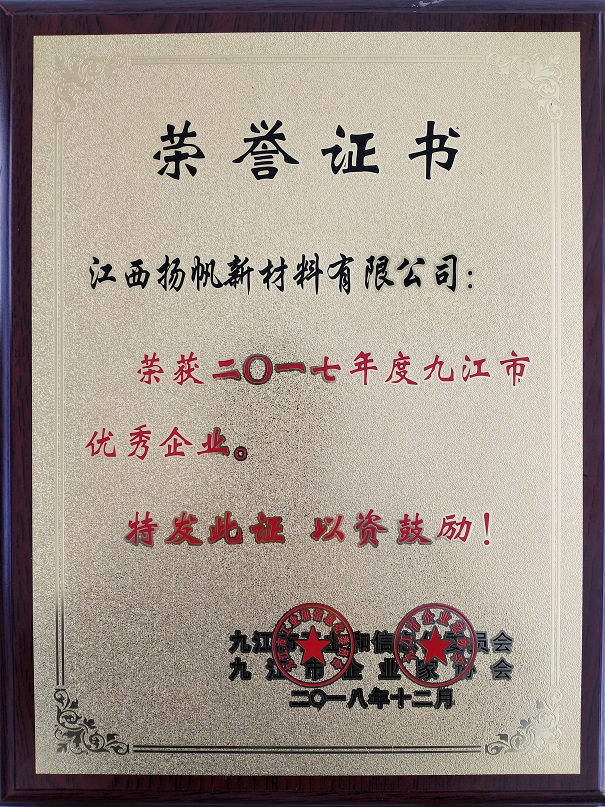 荣誉证书
江西扬帆新材料有限公司：
荣获二〇一七年度九江市
优秀企业。
特发此证 以资鼓励！
九江市工业和信息化委员会
九江市企业家协会
二〇一八年十二月